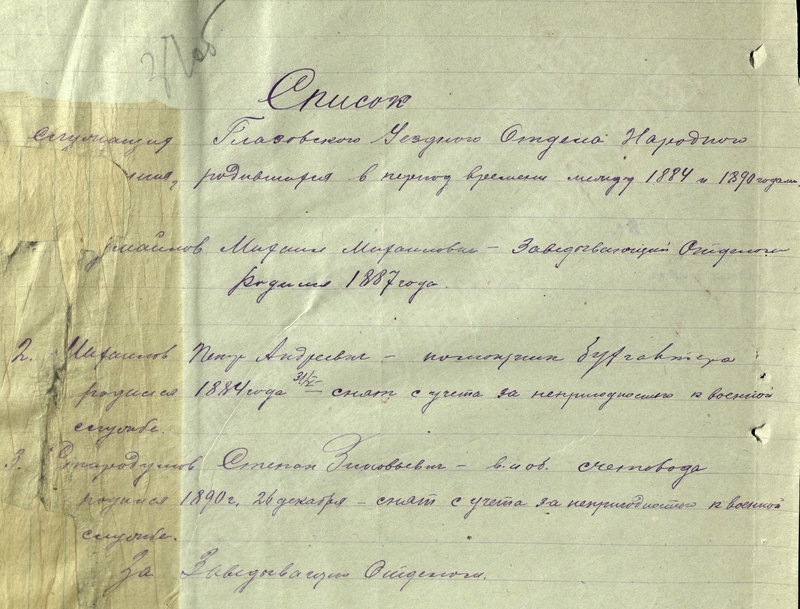 Список
служащих Глазовского Уездного Отдела Народного
ния, родившихся в период времени между 1884 и 1890 годами
Михаил Михаилович – Заведывающий Отделом
родился 1887 года.
2. Михаилов Петр Андреевич – помощник бухгалтера
родился 1884 года снят с учета за непригодностью к военной
службе.
3. Стародумов Степан Зиновьевич – в. и об. счетовода
родился 1890 г. 26 декабря – снят с учета за непригодностью к военной
службе.
За Заведывающ Отделом.